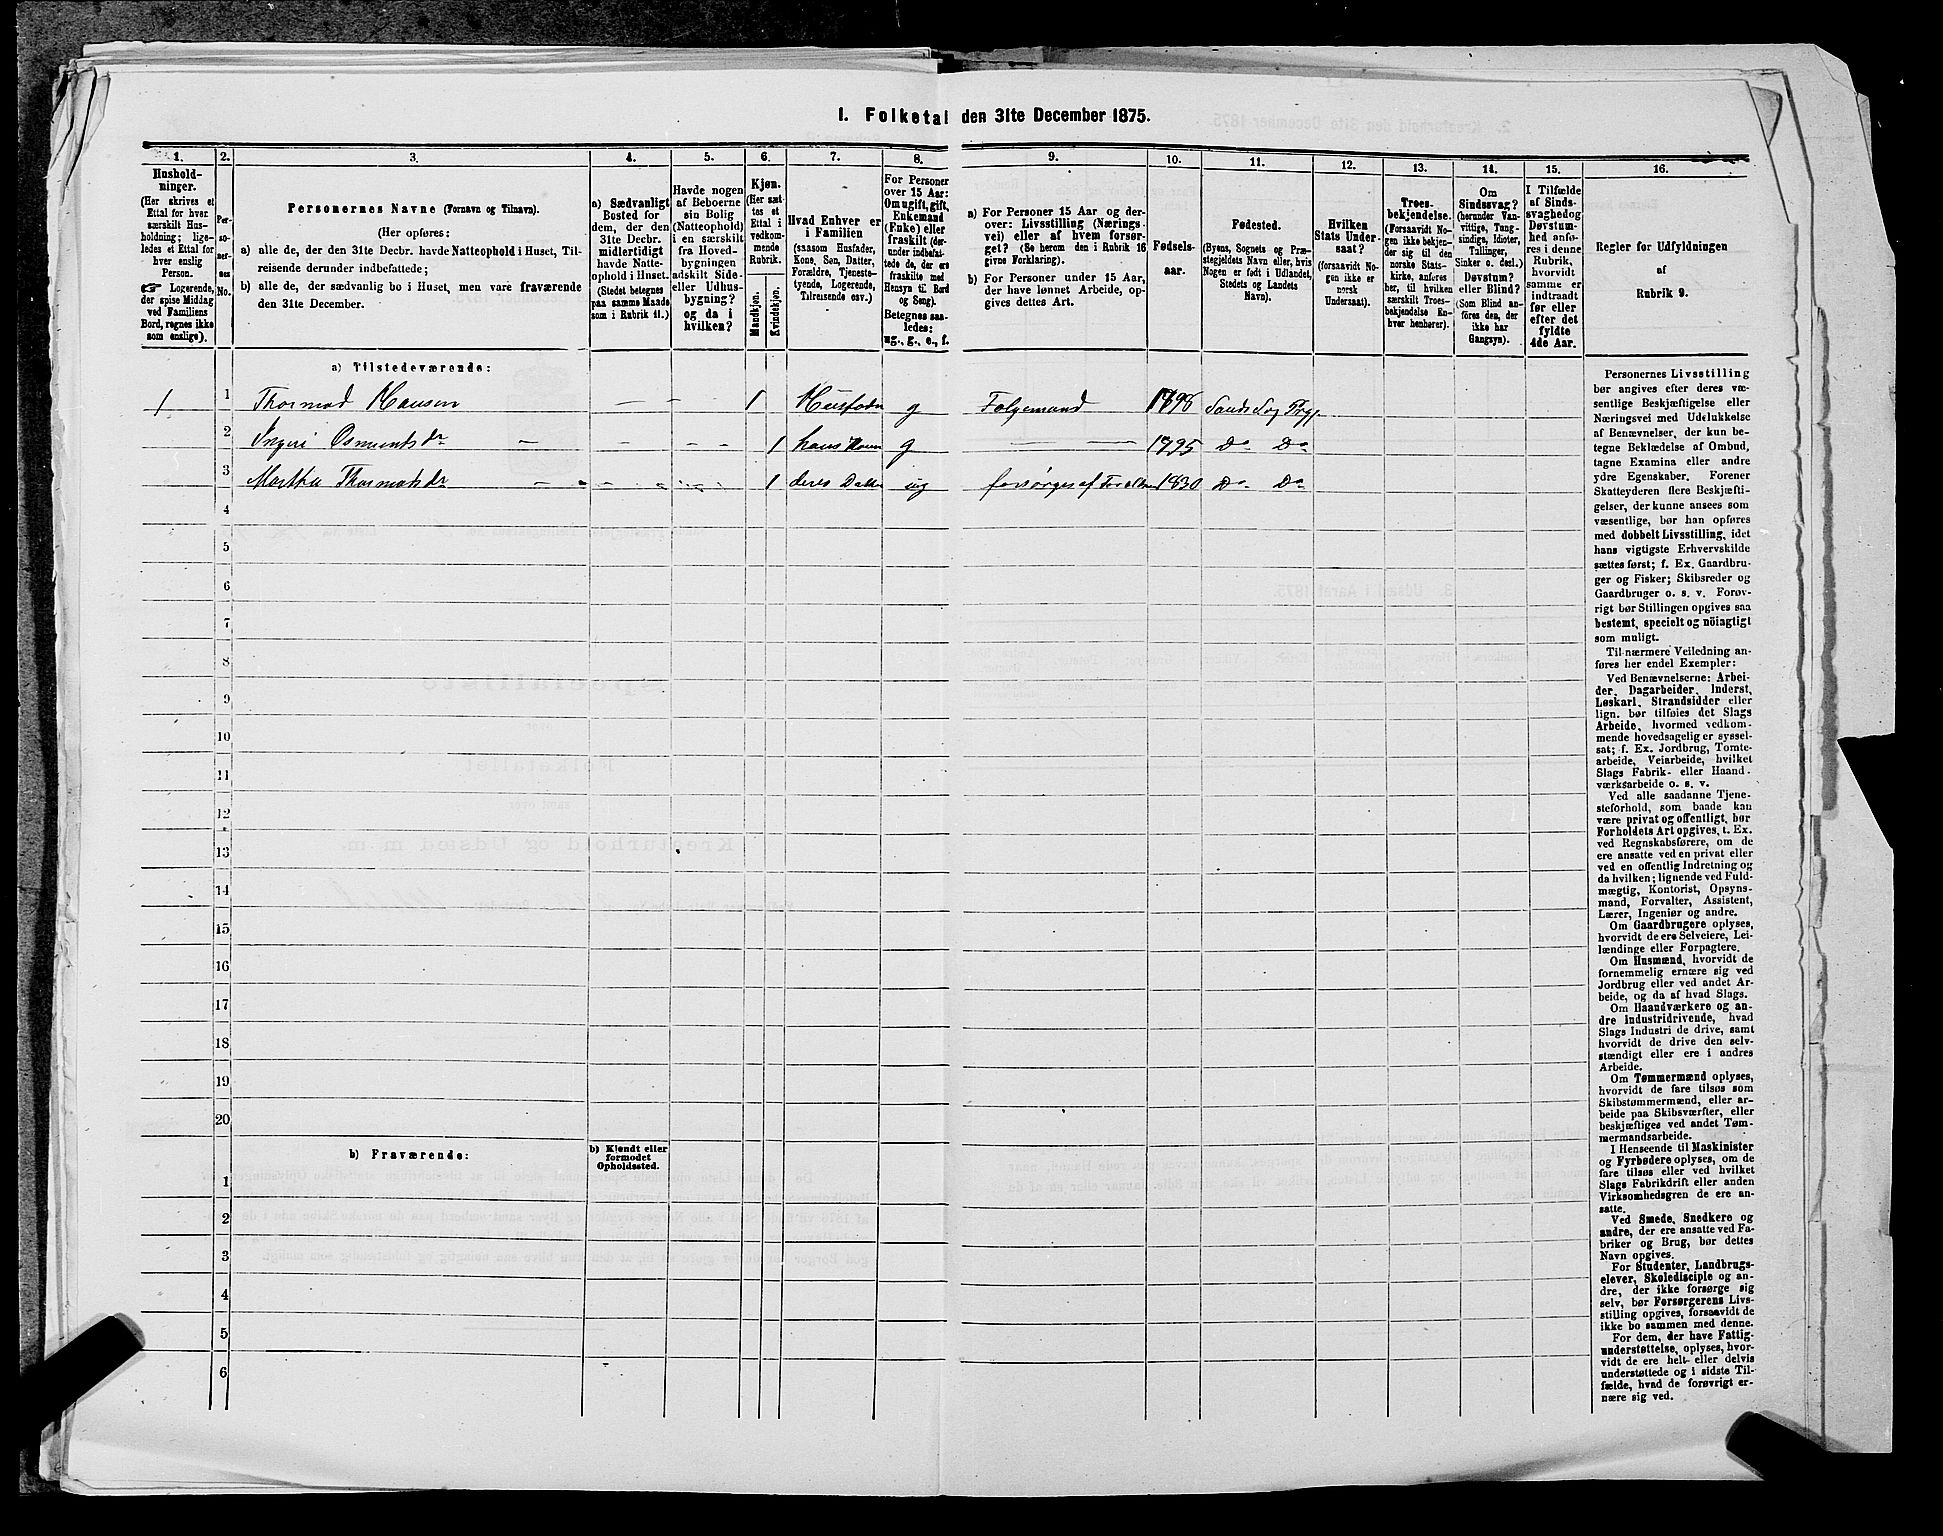 I. Folketal den 31te December 1875.
1. 2. 3. 4. 5. 6. 7. 8. 9. 10. 11. 12. 13. 14. 15. 16.
Hushold-
ninger.
(Her skrives et
Ettal for hver
særskilt Hus-
holdning; lige-
ledes et Ettal for
hver enslig
Person.
☞ Logerende,
der spise Middag
ved Familiens
Bord, regnes ikke
som enslige).
Per-
so-
ner-
nes
No.
Personernes Navne (Fornavn og Tilnavn).
(Her opføres:
a) alle de, der den 31te Decbr. havde Natteophold i Huset, Til-
reisende derunder indbefattede;
b) alle de, der sædvanlig bo i Huset, men vare fraværende
den 31te December.
a) Sædvanligt
Bosted for
dem, der den
31te Decbr.
midlertidigt
havde Natte-
ophold i Huset.
(Stedet betegnes
paa samme Maade
som i Rubrik 11.)
Havde nogen
af Beboerne
sin Bolig
(Natteophold)
i en særskilt
fra Hoved-
bygningen
adskilt Side-
eller Udhus-
bygning?
og da i
hvilken?
Kjøn.
(Her sæt-
tes et
Ettal i
vedkom-
mende
Rubrik.
Mandkjøn.
Kvindekjøn.
Hvad Enhver er
i Familien
(saasom Husfader,
Kone, Søn, Datter,
Forældre, Tjeneste-
tyende, Logerende,
Tilreisende osv.)
For Personer
over 15 Aar:
Om ugift, gift,
Enkemand
(Enke) eller
fraskilt (der-
under indbefat-
tede de, der ere
fraskilte med
Hensyn til Bord
og Seng).
Betegnes saa-
ledes:
ug., g., e., f.
a) For Personer 15 Aar og der-
over: Livsstilling (Nærings-
vei) eller af hvem forsør-
get? (Se herom den i Rubrik 16
givne Forklaring).
b) For Personer under 15 Aar,
der have lønnet Arbeide, op-
gives dettes Art.
Fødsels-
aar.
Fødested.
(Byens, Sognets og Præ-
stegjeldets Navn eller, hvis
Nogen er født i Udlandet,
Stedets og Landets
Navn).
Hvilken
Stats Under-
saat?
(forsaavidt No-
gen ikke er
norsk
Undersaat).
Troes-
bekjendelse.
(Forsaavidt No-
gen ikke bekjen-
der sig til den
norske Stats-
kirke, anføres
her, til hvilken
særskilt Troes-
bekjendelse En-
hver henhører).
Om
Sindssvag?
(herunder Van-
vittige, Tung-
sindige, Idioter,
Tullinger,
Sinker o. desl.)
Døvstum?
eller Blind?
(Som Blind an-
føres den, der
ikke har
Gangsyn).
I Tilfælde
af Sinds-
svaghed og
Døvstum-
hed anfø-
res i denne
Rubrik,
hvorvidt
samme er
indtraadt
før eller
efter det
fyldte
4de Aar.
Regler for Udfyldningen
af
Rubrik 9.
a) Tilstedeværende:
1 1 Thormod Hansen – – 1 Husfader g Folgemand 1798 Sands Sog
2 Ingeri Osmundsdr – – – 1 hans Kone g – 1795 Do Do
3 Martha Thormodsdr – – – 1 deres Datter ug forsørges af Forældre 1830 Do Do
4
5
6
7
8
9
10
11
12
13
14
15
16
17
18
19
20
b) Fraværende:
b) Kjendt eller
formodet
Opholdssted.
1
2
3
4
5
6
Personernes Livsstilling
bør angives efter deres væ-
sentlige Beskjæftigelse eller
Næringsvei med Udelukkelse
af Benævnelser, der kun be-
tegne Beklædelse af Ombud,
tagne Examina eller andre
ydre Egenskaber. Forener
Skatteyderen flere Beskjæfti-
gelser, der kunne ansees som
væsentlige, bør han opføres
med dobbelt Livsstilling, idet
hans vigtigste Erhvervskilde
sættes først; f. Ex. Gaardbru-
ger og Fisker; Skibsreder og
Gaardbruger o. s. v. Forøv-
rigt bør Stillingen opgives saa
bestemt, specielt og nöiagtigt
som muligt.
Til nærmere Veiledning an-
føres her endel Exempler:
Ved Benævnelserne: Arbei-
der, Dagarbeider, Inderst,
Løskarl, Strandsidder eller
lign. bør tilføies det Slags
Arbeide, hvormed vedkom-
mende hovedsagelig er syssel-
sat; f. Ex. Jordbrug, Tomte-
arbeide, Veiarbeide, hvilket
Slags Fabrik- eller Haand-
værksarbeide o. s. v.
Ved alle saadanne Tjene-
steforhold, som baade kan
være privat og offentligt, bør
Forholdets Art opgives, t. Ex.
ved Regnskabsførere, om de
ere ansatte ved en privat eller
ved en offentlig Indretning og
da hvilken; lignende ved Fuld-
mægtig, Kontorist, Opsyns-
mand, Forvalter, Assistent,
Lærer, Ingeniør og andre.
Om Gaardbrugere oplyses,
hvorvidt de ere Selveiere, Lei-
lændinge eller Forpagtere.
Om Husmænd, hvorvidt de
fornemmelig ernære sig ved
Jordbrug eller ved andet Ar-
beide, og da af hvad Slags.
Om Haandværkere og an-
dre Industridrivende, hvad
Slags Industri de drive, samt
hvorvidt de drive den selv-
stændigt eller ere i andres
Arbeide.
Om Tømmermænd oplyses,
hvorvidt de fare tilsøs som
Skibstømmermænd, eller ar-
beide paa Skibsværfter, eller
beskjæftiges ved andet Tøm-
mermandsarbeide.
I Henseende til Maskinister
og Fyrbødere oplyses, om de
fare tilsøs eller ved hvilket
Slags Fabrikdrift eller anden
Virksomhedsgren de ere an-
satte.
Ved Smede, Snedkere og
andre, der ere ansatte ved Fa-
briker og Brug, bør dettes
Navn opgives.
For Studenter, Landbrugs-
elever, Skoledisciple og an-
dre, der ikke forsørge sig
selv, bør Forsørgerens Livs-
stilling opgives, forsaavidt de
ikke bo sammen med denne.
For dem, der have Fattig-
understøttelse, oplyses, hvor-
vidt de ere helt- eller delvis
understøttede og i sidste Til-
fælde, hvad de forøvrigt er-
nære sig ved.